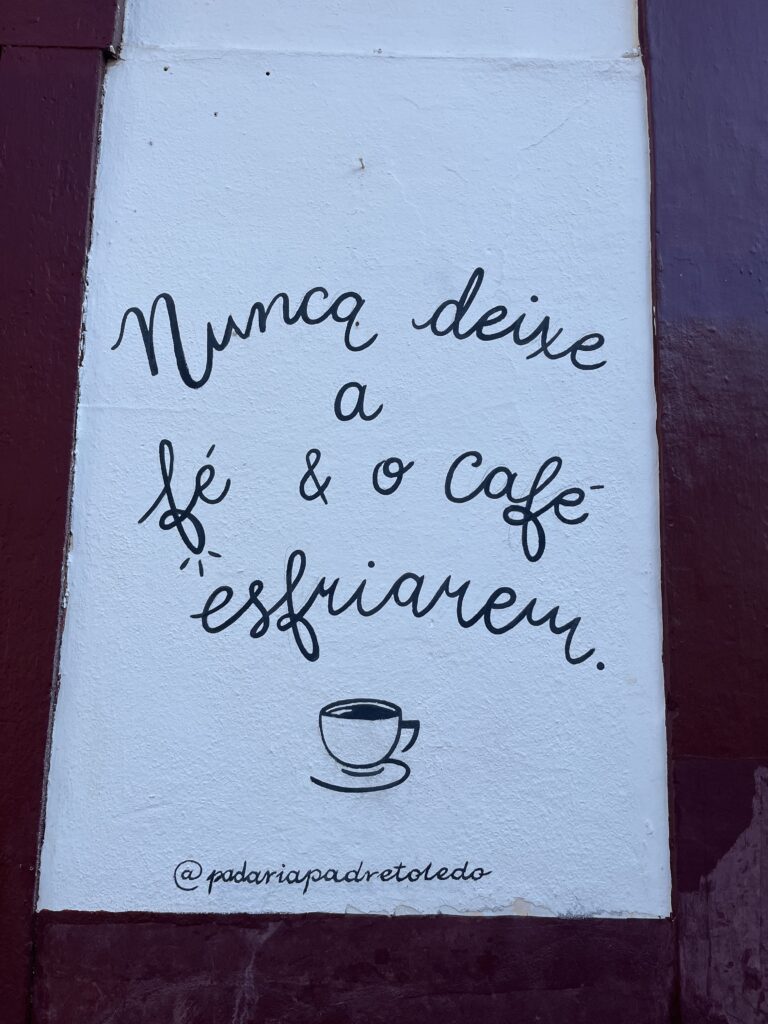 Nunca deixe
a
fé & o café
esfriarem.
@padariapadretoledo